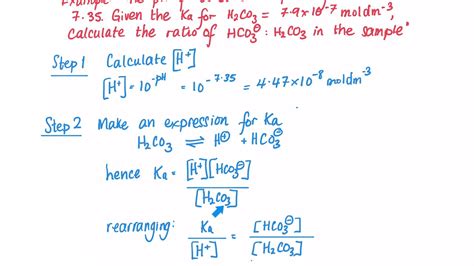 7.35. Given the Ka for H₂CO₃ = 7.9×10⁻⁷ mol dm⁻³,
calculate the ratio of HCO₃⊖ : H₂CO₃ in the sample
Step 1 Calculate [H⁺]
[H⁺] = 10^-pH = 10^-7.35 = 4.47×10⁻⁸ mol dm⁻³
Step 2 Make an expression for Ka
H₂CO₃ ⇌ H⊕ + HCO₃⊖
hence Ka = [H⊕][HCO₃⊖] / [H₂CO₃]
rearranging: Ka / [H⊕] = [HCO₃⊖] / [H₂CO₃]